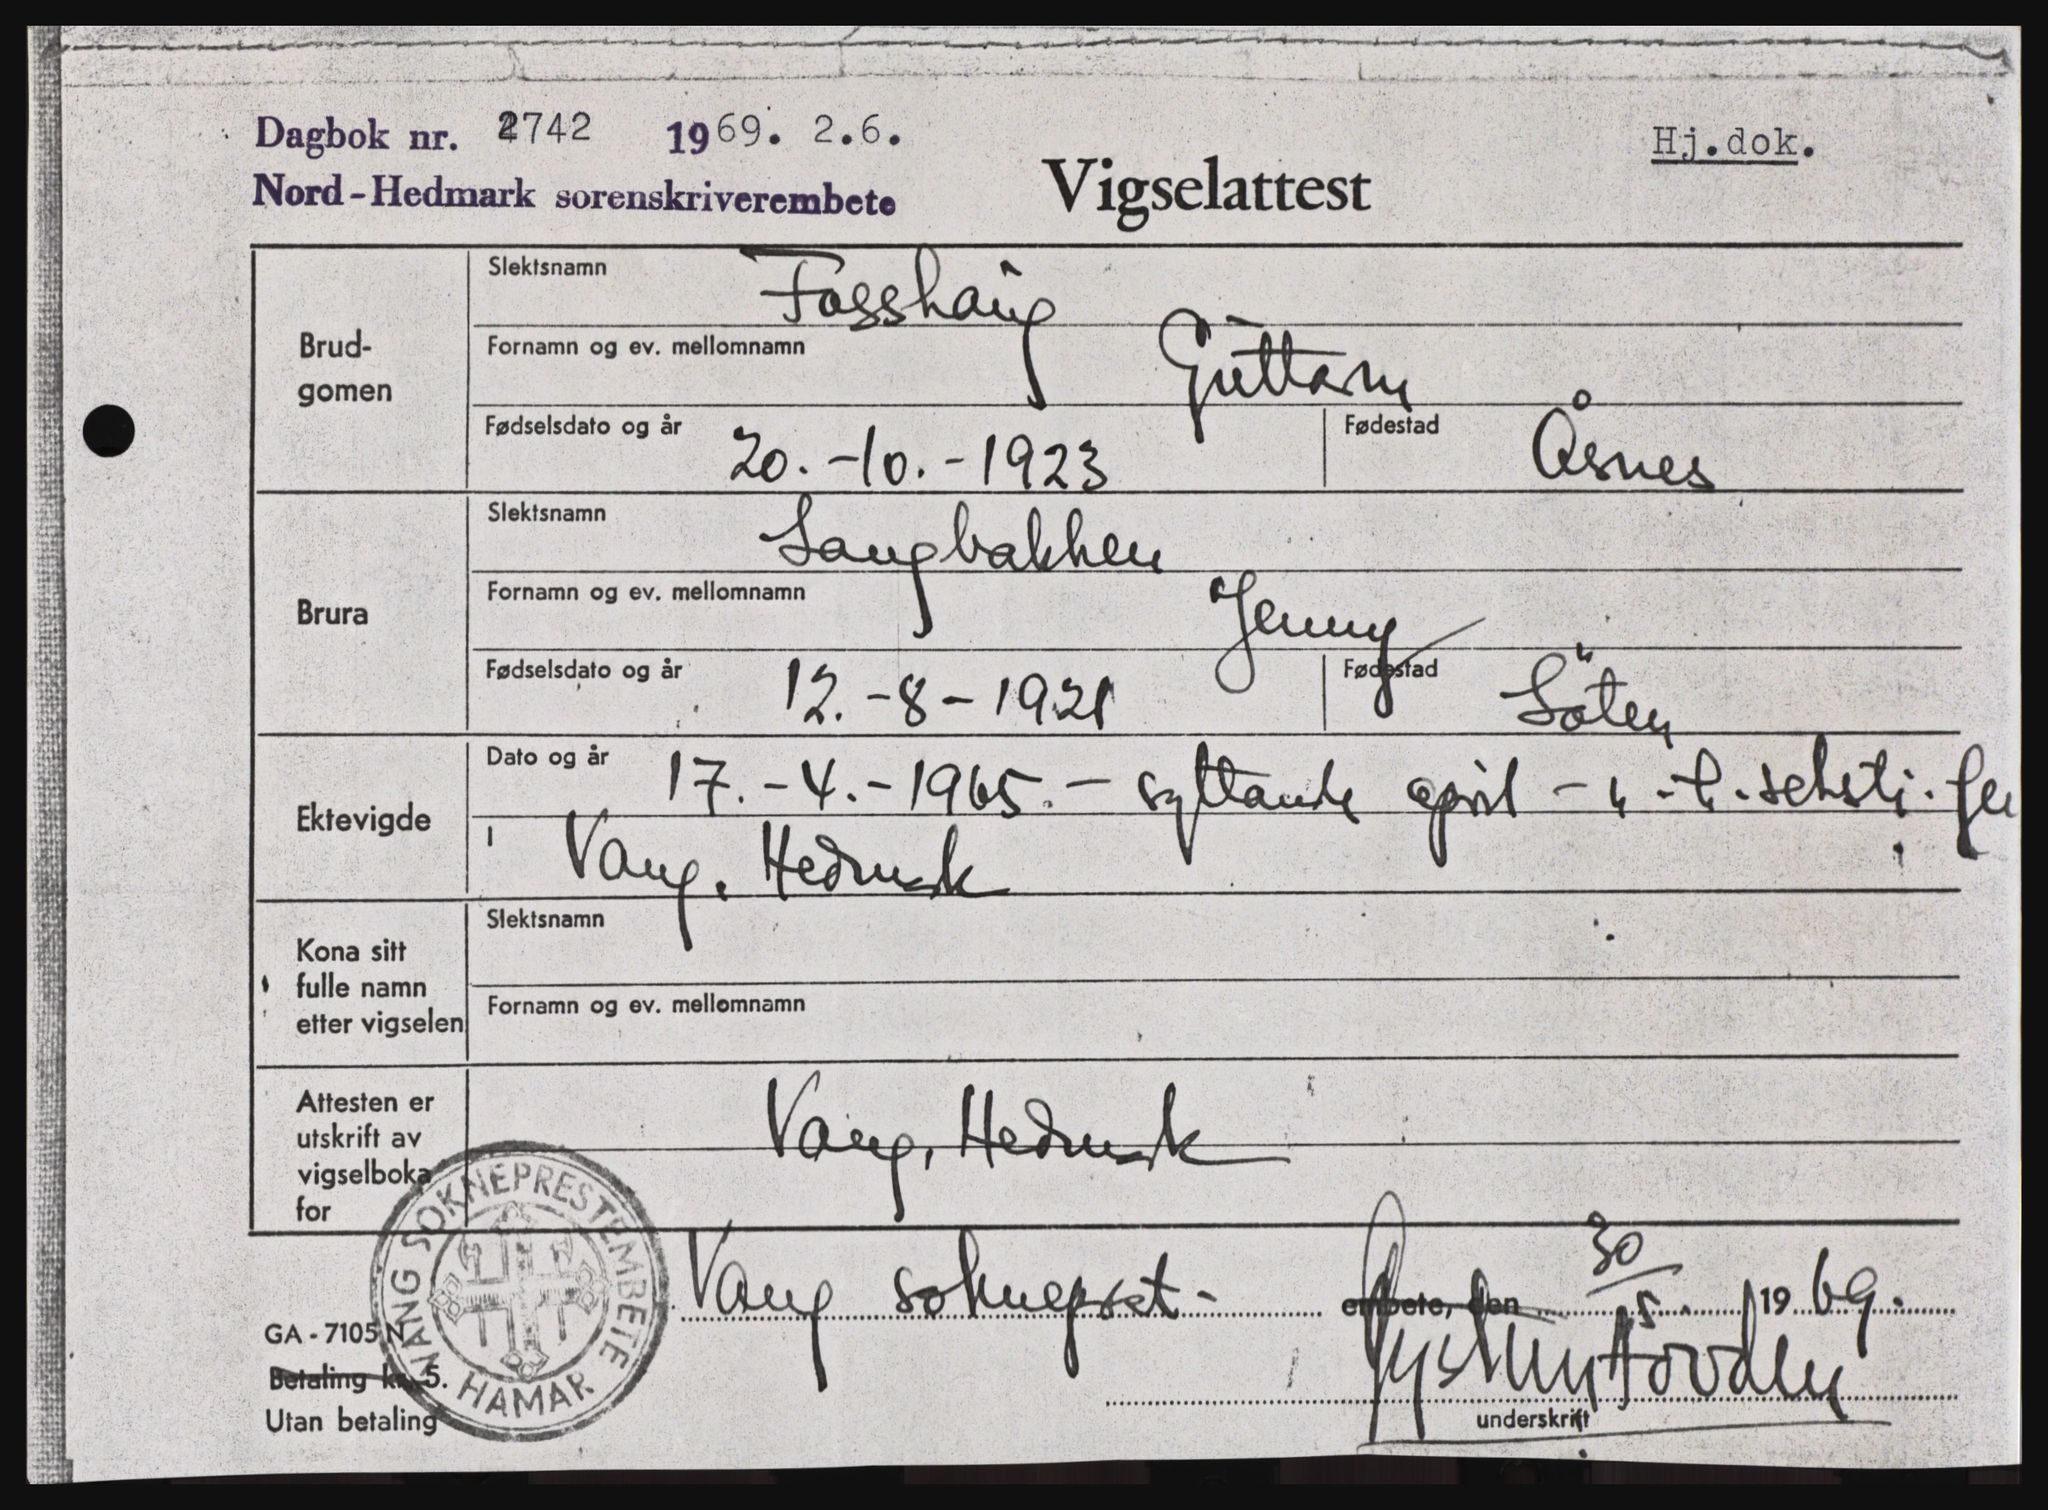 Dagbok nr. 2742 1969. 2.6.
Hj.dok.
Nord-Hedmark sorenskriverembete
Vigselattest
Brudgomen
Slektsnamn Fosshaug
Fornamn og ev. mellomnamn Guttorm
Fødselsdato og år 20.-10.-1923 Fødestad Åsnes
Brura
Slektsnamn Langbakken
Fornamn og ev. mellomnamn Jenny
Fødselsdato og år 12.-8-1921 Fødestad Löten
Ektevigde
Dato og år 17.-4.-1965.- syttande april - seksti.
i Vang, Hedmark
Kona sitt fulle namn etter vigselen
Slektsnamn
Fornamn og ev. mellomnamn
Attesten er utskrift av vigselboka for
Vang, Hedmark
VANG SOKNEPRESTEMBETE
HAMAR
Vang sokneprest- embete, den 30/5. 1969.
GA-7105 N
Betaling kr. 5.
Utan betaling
underskrift